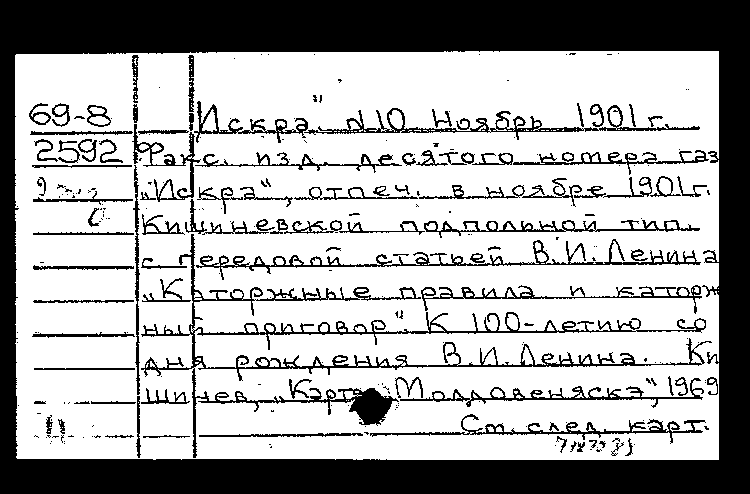 69-8 Искра" N10 Ноябрь 1901 г.
2592 Факс. изд. десятого номера газ
„Искра", отпеч. в ноябре 1901г.
Кишиневской подпольной тип.
с передовой статьей В.И.Ленина
„Каторжные правила и каторж
ный приговор". К 100-летию со
дня рождения В.И.Ленина. Ки
шинев, „Картя Молдовеняскэ", 1969
См. след. карт.